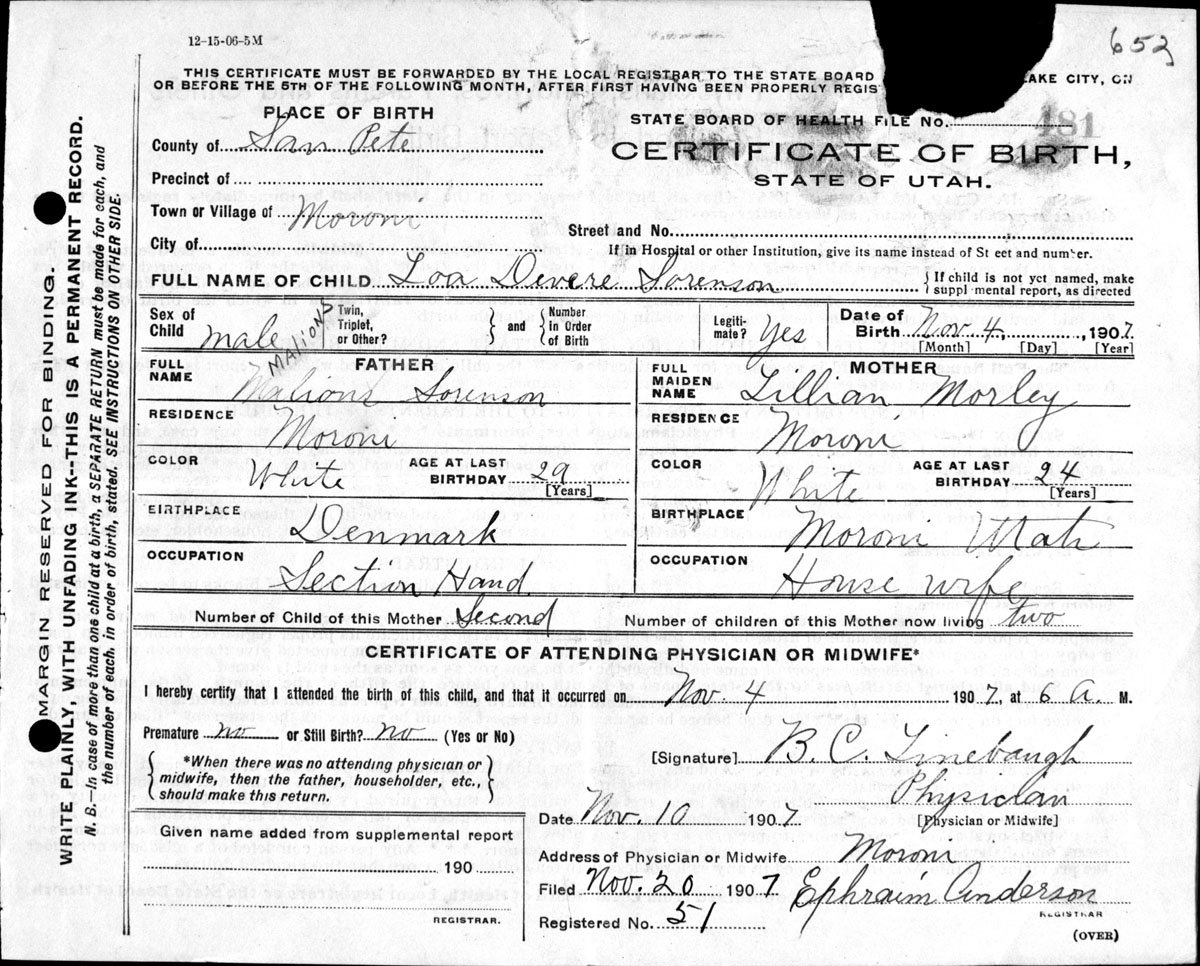 12-15-06-5M
652
THIS CERTIFICATE MUST BE FORWARDED BY THE LOCAL REGISTRAR TO THE STATE BOARD LAKE CITY, ON
OR BEFORE THE 5TH OF THE FOLLOWING MONTH, AFTER FIRST HAVING BEEN PROPERLY REGIS
PLACE OF BIRTH
STATE BOARD OF HEALTH FILE No. 181
County of San Pete
CERTIFICATE OF BIRTH,
STATE OF UTAH.
Precinct of
Town or Village of Moroni
Street and No.
City of
If in Hospital or other Institution, give its name instead of St eet and number.
FULL NAME OF CHILD Loa Devere Sorenson
{ If child is not yet named, make
suppl mental report, as directed
Sex of Child male Twin, Triplet, or Other? { and { Number in Order of Birth Legiti- mate? Yes Date of Birth Nov. 4, 1907.
[Month] [Day] [Year]
FATHER
MOTHER
FULL NAME Malions Sorenson
MALIONS
FULL MAIDEN NAME Lillian Morley
RESIDENCE Moroni
RESIDENCE Moroni
COLOR White AGE AT LAST BIRTHDAY 29 [Years]
COLOR White AGE AT LAST BIRTHDAY 24 [Years]
BIRTHPLACE Denmark
BIRTHPLACE Moroni Utah
OCCUPATION Section Hand
OCCUPATION House wife
Number of Child of this Mother Second
Number of children of this Mother now living two
CERTIFICATE OF ATTENDING PHYSICIAN OR MIDWIFE*
I hereby certify that I attended the birth of this child, and that it occurred on Nov. 4 1907, at 6 A. M.
Premature no or Still Birth? no (Yes or No)
[Signature] B. C. Linebaugh
Physician
[Physician or Midwife]
{ *When there was no attending physician or
midwife, then the father, householder, etc.,
should make this return. }
Date Nov. 10 1907.
Given name added from supplemental report
190
REGISTRAR.
Address of Physician or Midwife Moroni
Filed Nov. 20 1907 Ephraim Anderson
REGISTRAR
Registered No. 51
(OVER)
MARGIN RESERVED FOR BINDING.
WRITE PLAINLY, WITH UNFADING INK-THIS IS A PERMANENT RECORD.
N. B.—In case of more than one child at a birth, a SEPARATE RETURN must be made for each, and
the number of each, in order of birth, stated. SEE INSTRUCTIONS ON OTHER SIDE.